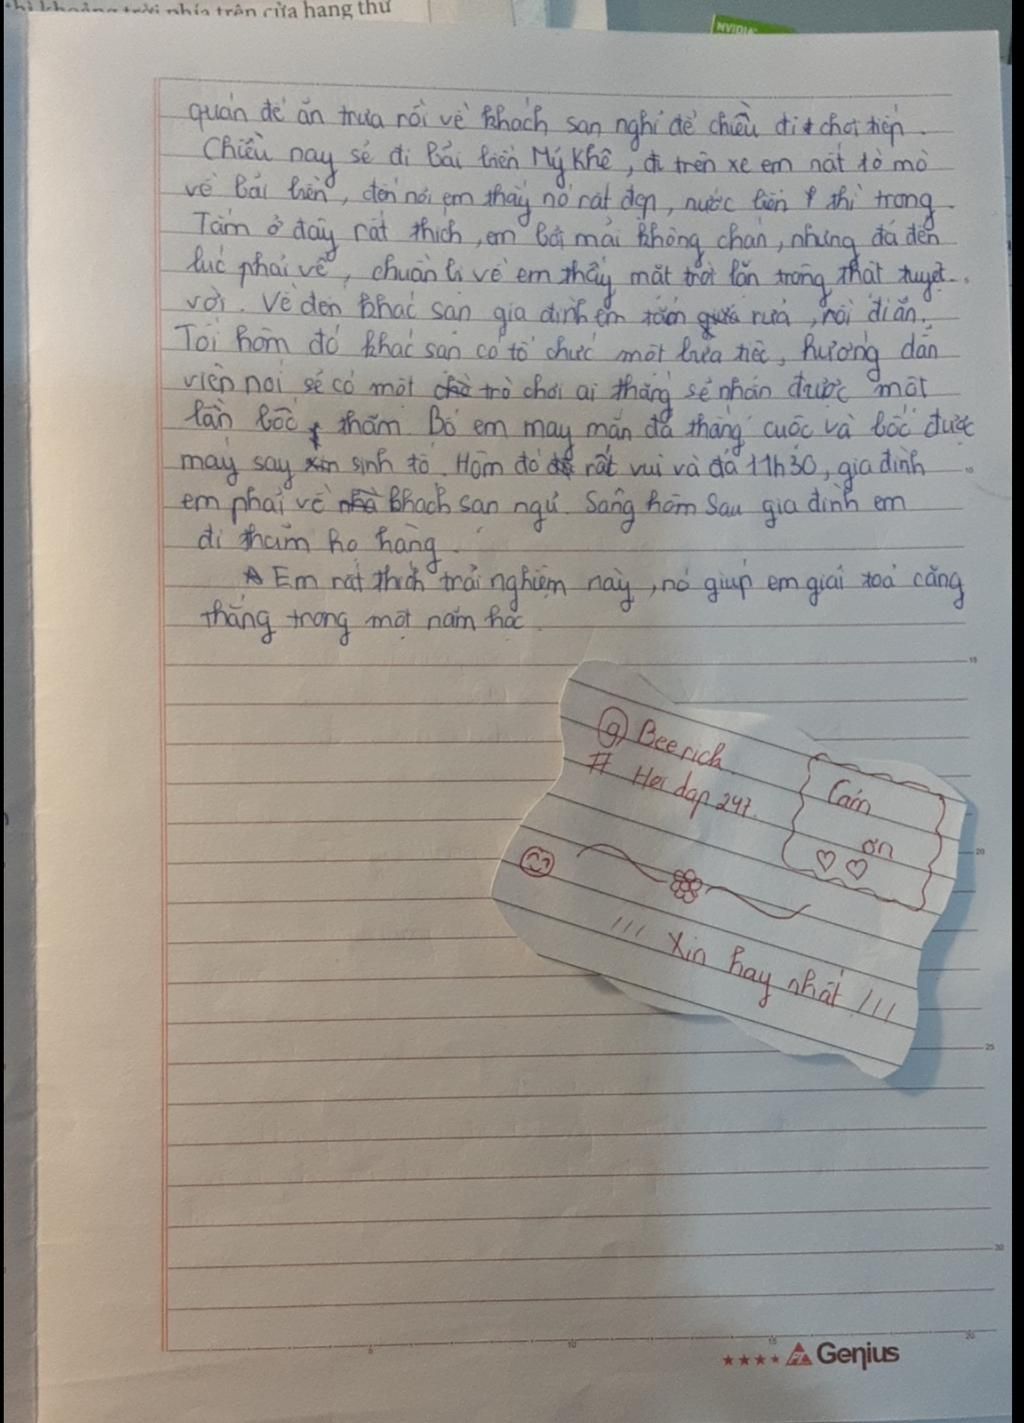 thì khoảng trời phía trên cửa hang thư
NVIDIA
quán để ăn trưa rồi về khách sạn nghỉ để chiều đi chơi tiếp.
Chiều nay sẽ đi bãi biển Mỹ Khê, đi trên xe em rất tò mò
về bãi biển, đến nơi em thấy nó rất đẹp, nước biển thì trong.
Tắm ở đây rất thích, em bơi mãi không chán, nhưng đã đến
lúc phải về, chuẩn bị về em thấy mặt trời lặn trông thật tuyệt
vời. Về đến khác sạn gia đình em tắm rửa, rồi đi ăn.
Tối hôm đó khác sạn có tổ chức một bữa tiệc, hướng dẫn
viên nói sẽ có một trò chơi ai thắng sẽ nhận được một
lần bốc thăm. Bố em may mắn đã thắng cuộc và bốc được
máy say sinh tố. Hôm đó rất vui và đã 11h30, gia đình
em phải về khách sạn ngủ. Sáng hôm sau gia đình em
đi thăm họ hàng.
Em rất thích trải nghiệm này, nó giúp em giải toả căng
thẳng trong một năm học.
@ Beerich.
# Hoi dap 247.
Cảm
ơn
!!! Xin hay nhất !!!
Genius